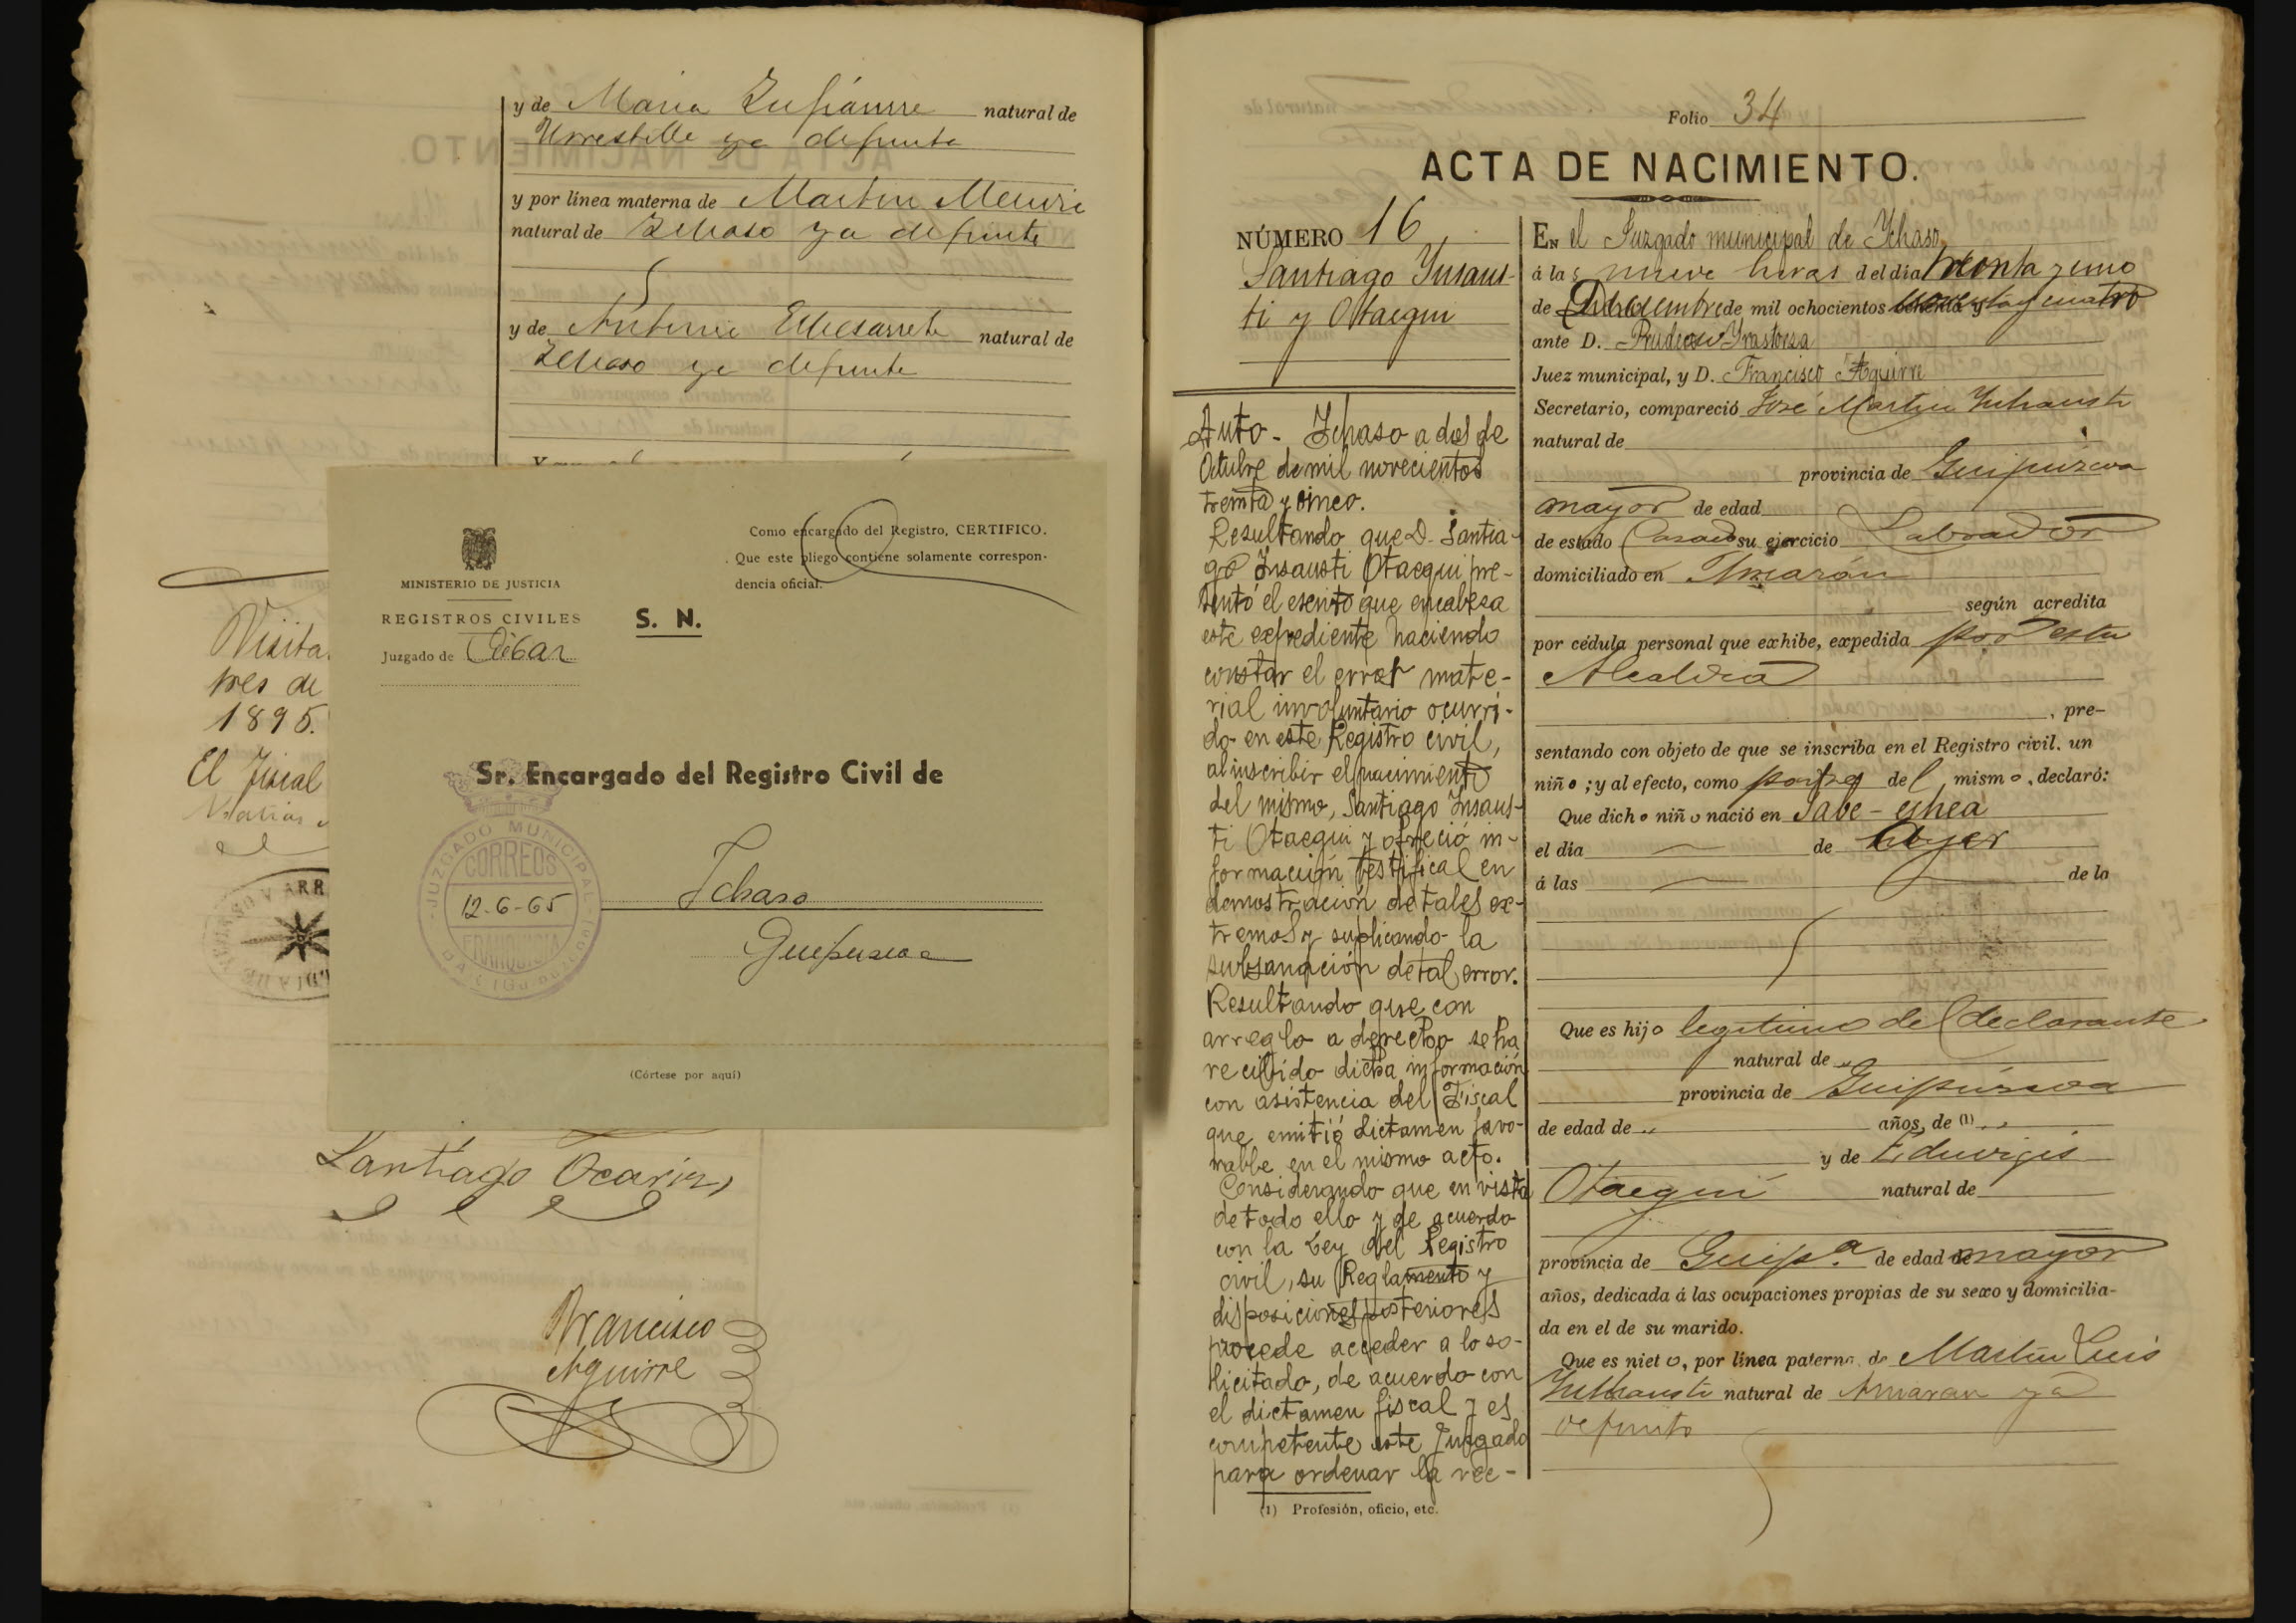 y de María natural de
Urrestille ya defunta
y por línea materna de Martín Mendi
natural de Ichaso ya defunto
y de Antonia Echezarreta natural de
Ichaso ya defunta
Visita
tres de
1895.
El Fiscal
Matías
ARR
MINISTERIO DE JUSTICIA
REGISTROS CIVILES
Juzgado de Eibar
S. N.
Como encargado del Registro, CERTIFICO.
Que este pliego contiene solamente correspon-
dencia oficial.
Sr. Encargado del Registro Civil de
JUZGADO MUNICIPAL
CORREOS
12-6-65
FRANQUICIA
Ichaso
Guipuzcoa
(Córtese por aquí)
Santiago Ocariz
Francisco
Aguirre
Folio 34
ACTA DE NACIMIENTO.
NÚMERO 16
Santiago Insaus-
ti y Otaegui
Auto - Ichaso a dos de
Octubre de mil novecientos
treinta y cinco.
Resultando que D. Santia-
go Insausti Otaegui pre-
sentó el escrito que encabeza
este expediente haciendo
constar el error mate-
rial involuntario ocurri-
do en este Registro civil,
al inscribir el nacimiento
del mismo, Santiago Insaus-
ti Otaegui y ofreció in-
formación testifical en
demostración de tales ex-
tremos y suplicando la
subsanación de tal error.
Resultando que con
arreglo a derecho se ha
recibido dicha información
con asistencia del Fiscal
que emitió dictamen favo-
rable en el mismo acto.
Considerando que en vista
de todo ello y de acuerdo
con la Ley del Registro
civil, su Reglamento y
disposiciones posteriores
procede acceder a lo so-
licitado, de acuerdo con
el dictamen fiscal y es
competente este Juzgado
para ordenar la rec-
(1) Profesión, oficio, etc.
En el Juzgado municipal de Ichaso
á las nueve horas del día treinta y uno
de Diciembre de mil ochocientos noventa y cuatro
ante D. Prudencio Irastorza
Juez municipal, y D. Francisco Aguirre
Secretario, compareció José Martín Inchausti
natural de
provincia de Guipúzcoa
mayor de edad
de estado Casado su ejercicio Labrador
domiciliado en Arriarán
según acredita
por cédula personal que exhibe, expedida por esta
Alcaldía
, pre-
sentando con objeto de que se inscriba en el Registro civil, un
niño; y al efecto, como padre del mismo, declaró:
Que dicho niño nació en Jabe-echea
el día — de Ayer
á las — de la
Que es hijo legítimo del declarante
natural de "
provincia de Guipúzcoa
de edad de " años, de (1) "
y de Eduvigis
Otaegui natural de
provincia de Guip.a de edad de mayor
años, dedicada á las ocupaciones propias de su sexo y domicilia-
da en el de su marido.
Que es nieto, por línea paterna de Martín Luis
Inchausti natural de Arriaran ya
defunto